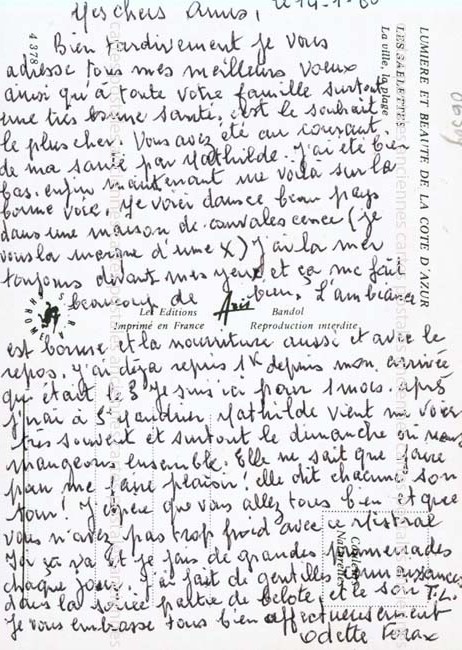 Mes chers Amis,
Bien tardivement je vous
adresse tous mes meilleurs voeux
ainsi qu'à toute votre famille surtout
une très bonne santé, c'est le souhait
le plus cher. Vous avez été au courant
de ma santé par Mathilde. J'ai été bien
bas. enfin maintenant me voilà sur la
bonne voie. je vous dans ce beau pays
dans une maison de convalescence (je
vous la marque d'une X) j'ai la mer
toujours devant mes yeux et ça me fait
beaucoup de bien. L'ambiance
est bonne et la nourriture aussi et avec le
repos. j'ai déjà repris 1K depuis mon arrivée
qui était le 3 je suis ici pour 1 mois. après
j'irai à St Mandrier. Mathilde vient me voir
très souvent et surtout le dimanche où nous
mangeons ensemble. Elle ne sait que faire
pour me faire plaisir! elle dit chacune son
tour! J'espère que vous allez tous bien et que
vous n'avez pas trop froid avec ce Mistral
Ici ça va et je fais de grandes promenades
chaque jour. J'ai fait de gentilles connaissances
dans la soirée partie de belote et le soir T.L.
Je vous embrasse tous bien affectueusement
Odette
4 378
LUMIERE ET BEAUTE DE LA COTE D'AZUR
LES SABLETTES
La ville, la plage
Les Editions Aris Bandol
Imprimé en France Reproduction interdite
Couleurs
Naturelles